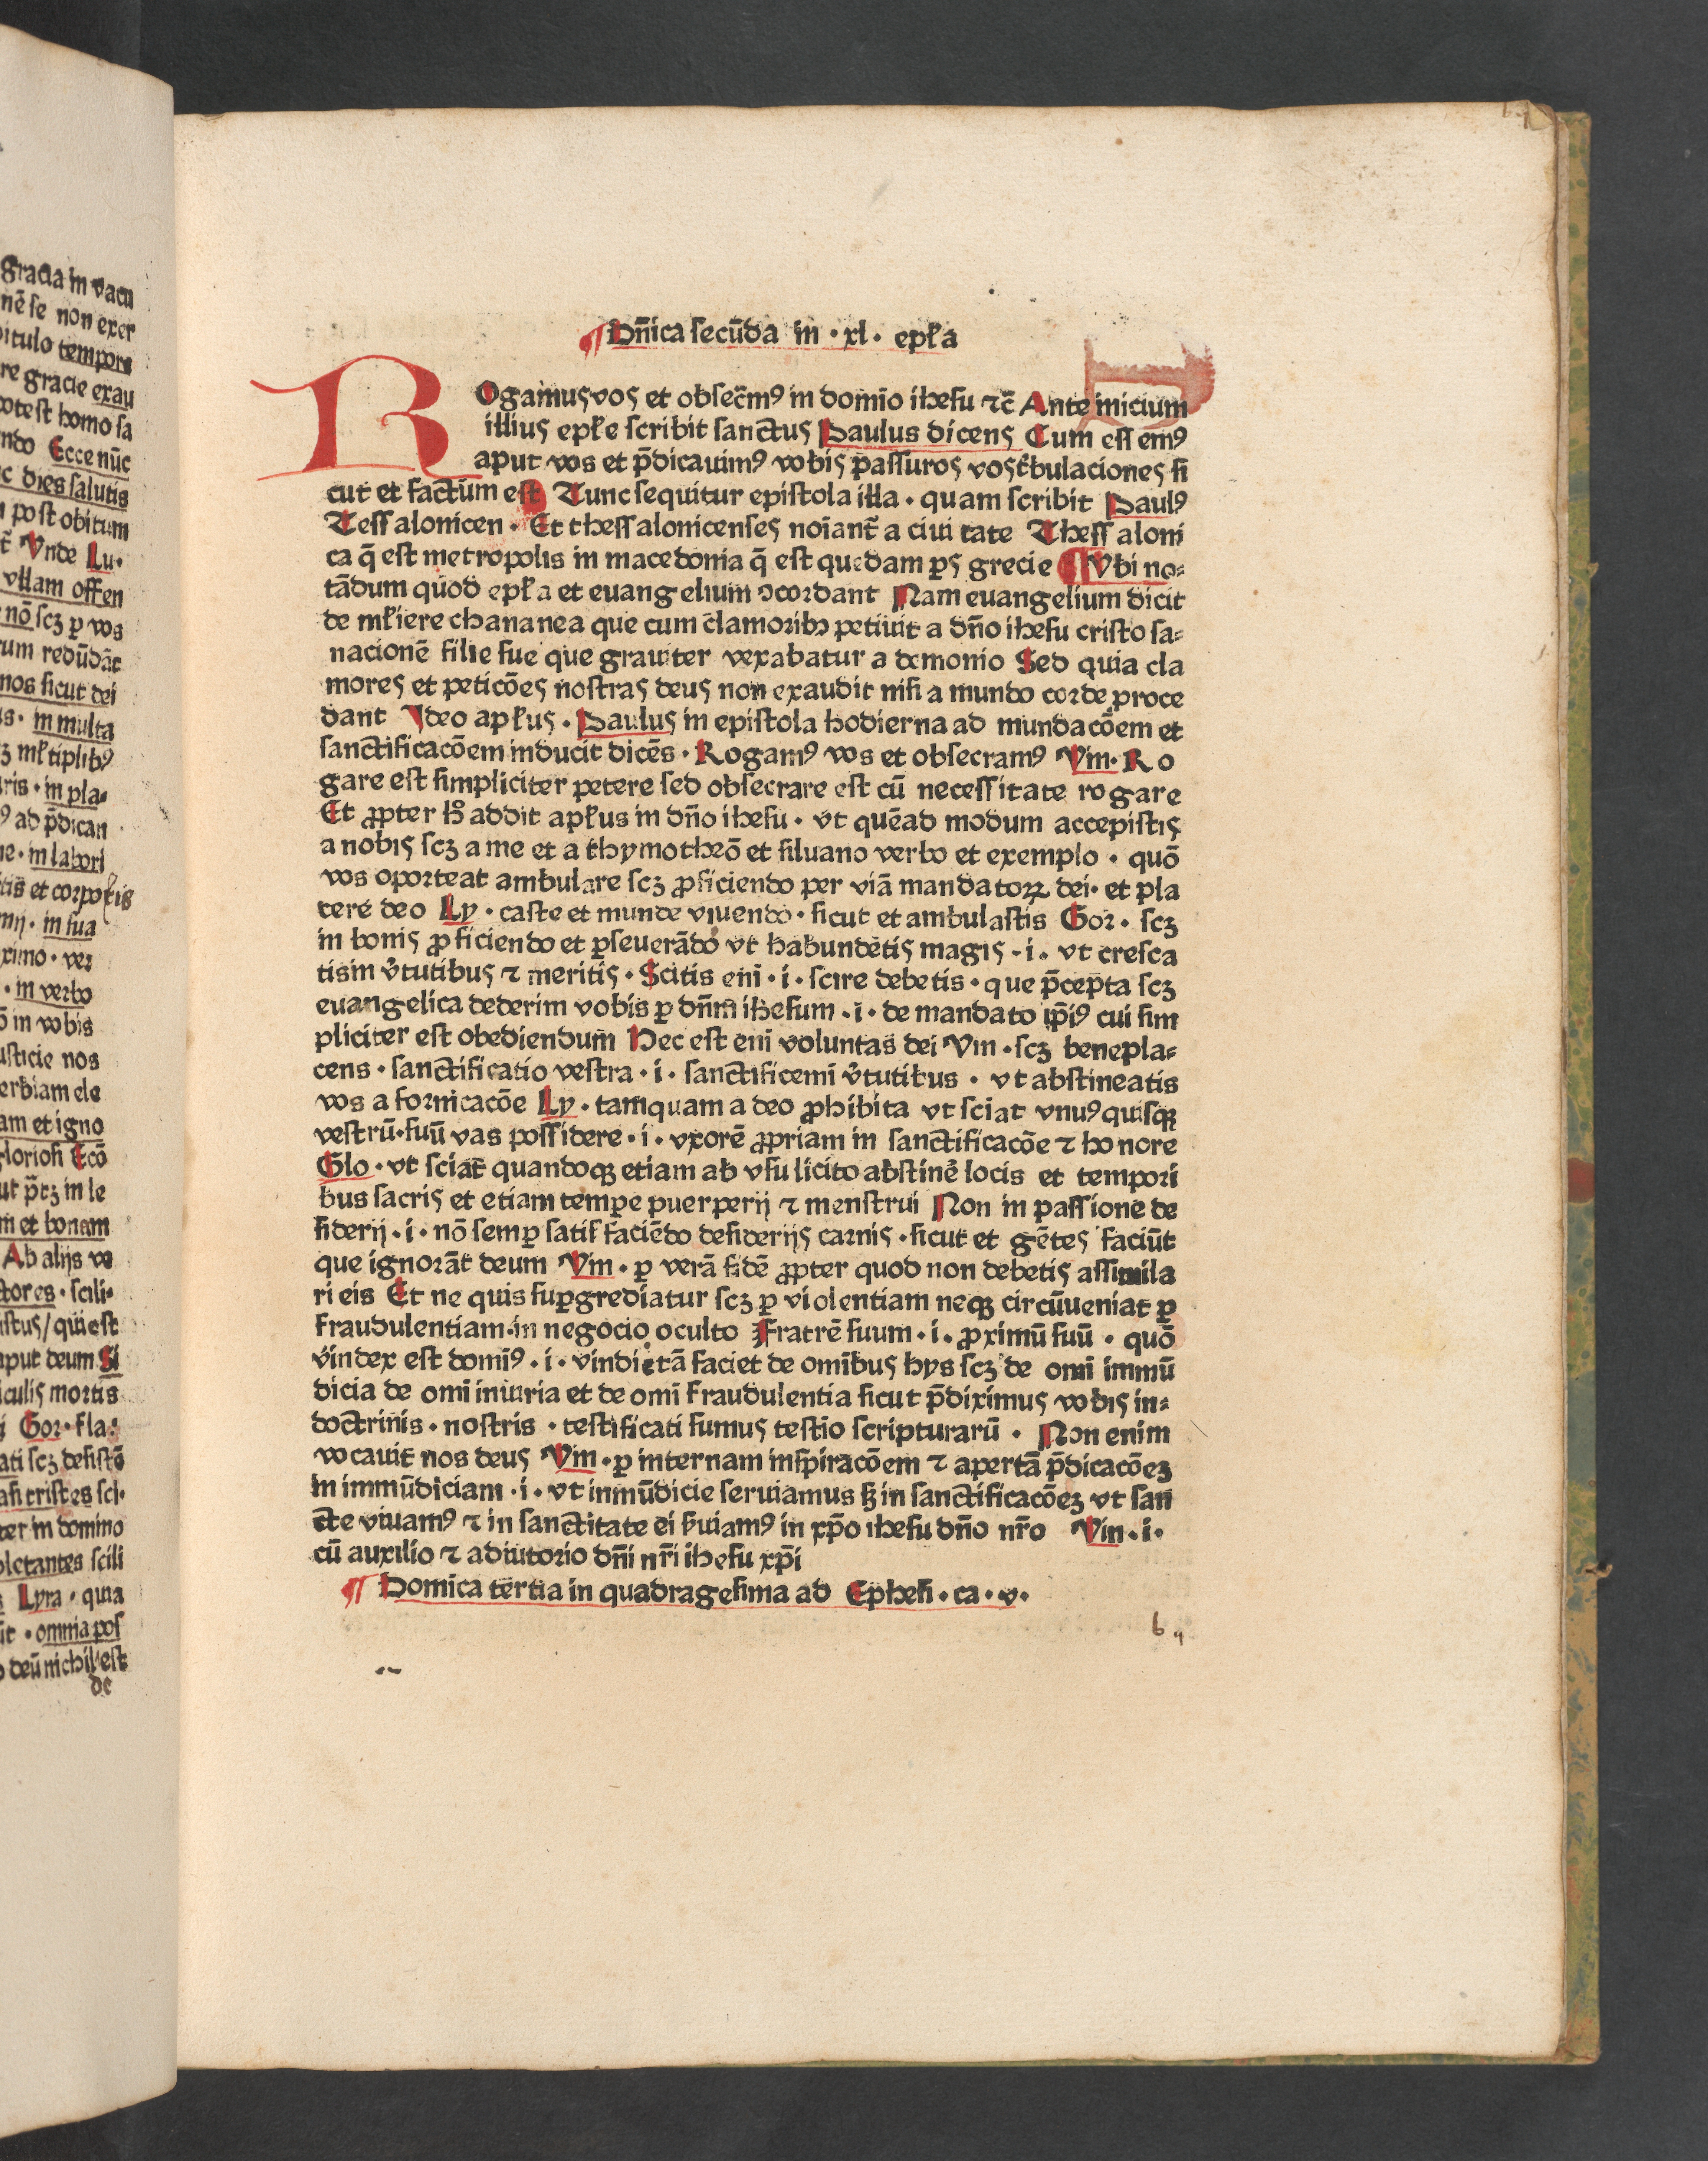 gracia in vacu
nē se non exer
pitulo tempore
re gracie exau
potest homo sa
ndo Ecce nūc
c dies salutis
post obitum
Vnde Lu·
vllam offen
nō scꝫ ꝑ vos
rum redūdāt
nos sicut dei
in multa
in pla⸗
ad p̄dican
in labori
tis et corporis
in sua
ximo · ver
· in verbo
in vobis
usticie nos
erbiam ele
am et igno
gloriosi Ecō
in le
m et bonam
Ab alijs ve
ctores · scili·
qui est
aput deum Si
iculis mortis
Gor· fla·
cati scꝫ desistō
tristes sci·
ter in domino
scili
Lyra · quia
· omnia pos
deū nichil est
de
¶ Dn̄ica secūda in · xl · epl̄a
ROgamus vos et obsec̄mꝰ in domīo ihesu ⁊c̄ Ante inicium
illius epl̄e scribit sanctus Paulus dicens Cum essemꝰ
aput vos et p̄dicauimꝰ vobis passuros vos t̄bulaciones si
cut et factum est Tunc sequitur epistola illa · quam scribit Paulꝰ
Tessalonicen · Et thessalonicenses noīant̄ a ciui tate Thessaloni
ca q̄ est metropolis in macedonia q̄ est quedam ꝑs grecie ¶ Vbi no⸗
tādum quod epl̄a et euangelium ↄcordant Nam euangelium dicit
de ml̄iere chananea que cum clamoribꝫ petiuit a dn̄o ihesu cristo sa⸗
nacionē filie sue que grauiter vexabatur a demonio Sed quia cla
mores et peticōes nostras deus non exaudit nisi a mundo corde proce
dant Ideo apl̄us · Paulus in epistola hodierna ad mundacōem et
sanctificacōem inducit dicēs · Rogamꝰ vos et obsecramꝰ Vin · Ro
gare est simpliciter petere sed obsecrare est cū necessitate rogare
Et ꝓpter hͦ addit apl̄us in dn̄o ihesu · vt quēad modum accepistis
a nobis scꝫ a me et a thymotheō et siluano verbo et exemplo · quō
vos oporteat ambulare scꝫ ꝓficiendo per viā mandatoꝝ dei · et pla
cere deo Ly · caste et munde viuendo · sicut et ambulastis Gor · scꝫ
in bonis ꝓficiendo et ꝑseuerādo vt habundētis magis · i · vt cresca
tis in v̄tutibus ⁊ meritis · Scitis eni · i · scire debetis · que p̄cepta scꝫ
euangelica dederim vobis ꝑ dn̄m ihesum · i · de mandato ip̄iꝰ cui sim
pliciter est obediendum Hec est eni voluntas dei Vin · scꝫ benepla⸗
cens · sanctificatio vestra · i · sanctificemi v̄tutibus · vt abstineatis
vos a fornicacōe Ly · tamquam a deo ꝓhibita vt sciat vnusꝰquisqꝫ
vestrū · suū vas possidere · i · vxorē ꝓpriam in sanctificacōe ⁊ honore
Glo · vt sciat quandoqꝫ etiam ab vsu licito abstinē locis et tempori
bus sacris et etiam tempe puerperij ⁊ menstrui Non in passione de
siderij · i · nō semꝑ satisfaciēdo desiderijs carnis · sicut et gētes faciūt
que ignorāt deum Vin · ꝑ verā fidē ꝓpter quod non debetis assimila
ri eis Et ne quis suꝑgrediatur scꝫ ꝑ violentiam neqꝫ circūueniat ꝑ
fraudulentiam in negocio oculto Fratrē suum · i · ꝓximū suū · quō
vindex est domīꝰ · i · vindictā faciet de omībus hys scꝫ de omī immū
dicia de omī iniuria et de omī fraudulentia sicut p̄diximus vobis in⸗
doctrinis · nostris · testificati sumus testīo scripturarū · Non enim
vocauit nos deus Vin · ꝑ internam inspiracōem ⁊ apertā p̄dicacōeꝫ
in immūdiciam · i · vt inmūdicie seruiamus sꝫ in sanctificacōeꝫ vt san
cte viuamꝰ ⁊ in sanctitate ei ẜuiamꝰ in xp̄o ihesu dn̄o nr̄o Vin · i ·
cū auxilio ⁊ adiutorio dn̄i nr̄i ihesu xp̄i
¶ Domica tertia in quadragesima ad Ephesi · ca · v ·